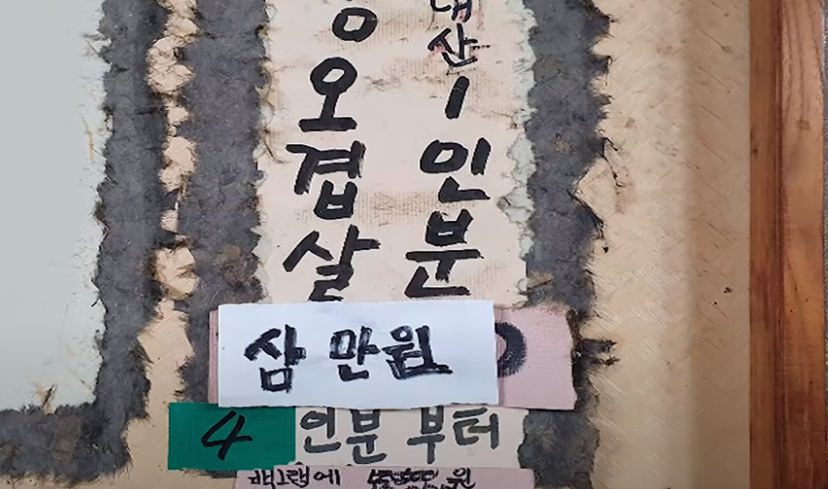 오겹살
산 1인분
삼만원
4인분 부터
백그램에
원